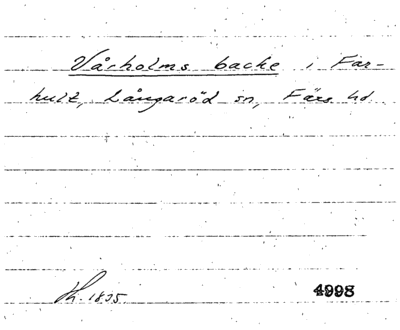 Vårholms backe i Far-
hult, Långaröd sn, Färs hd.
1835 4998